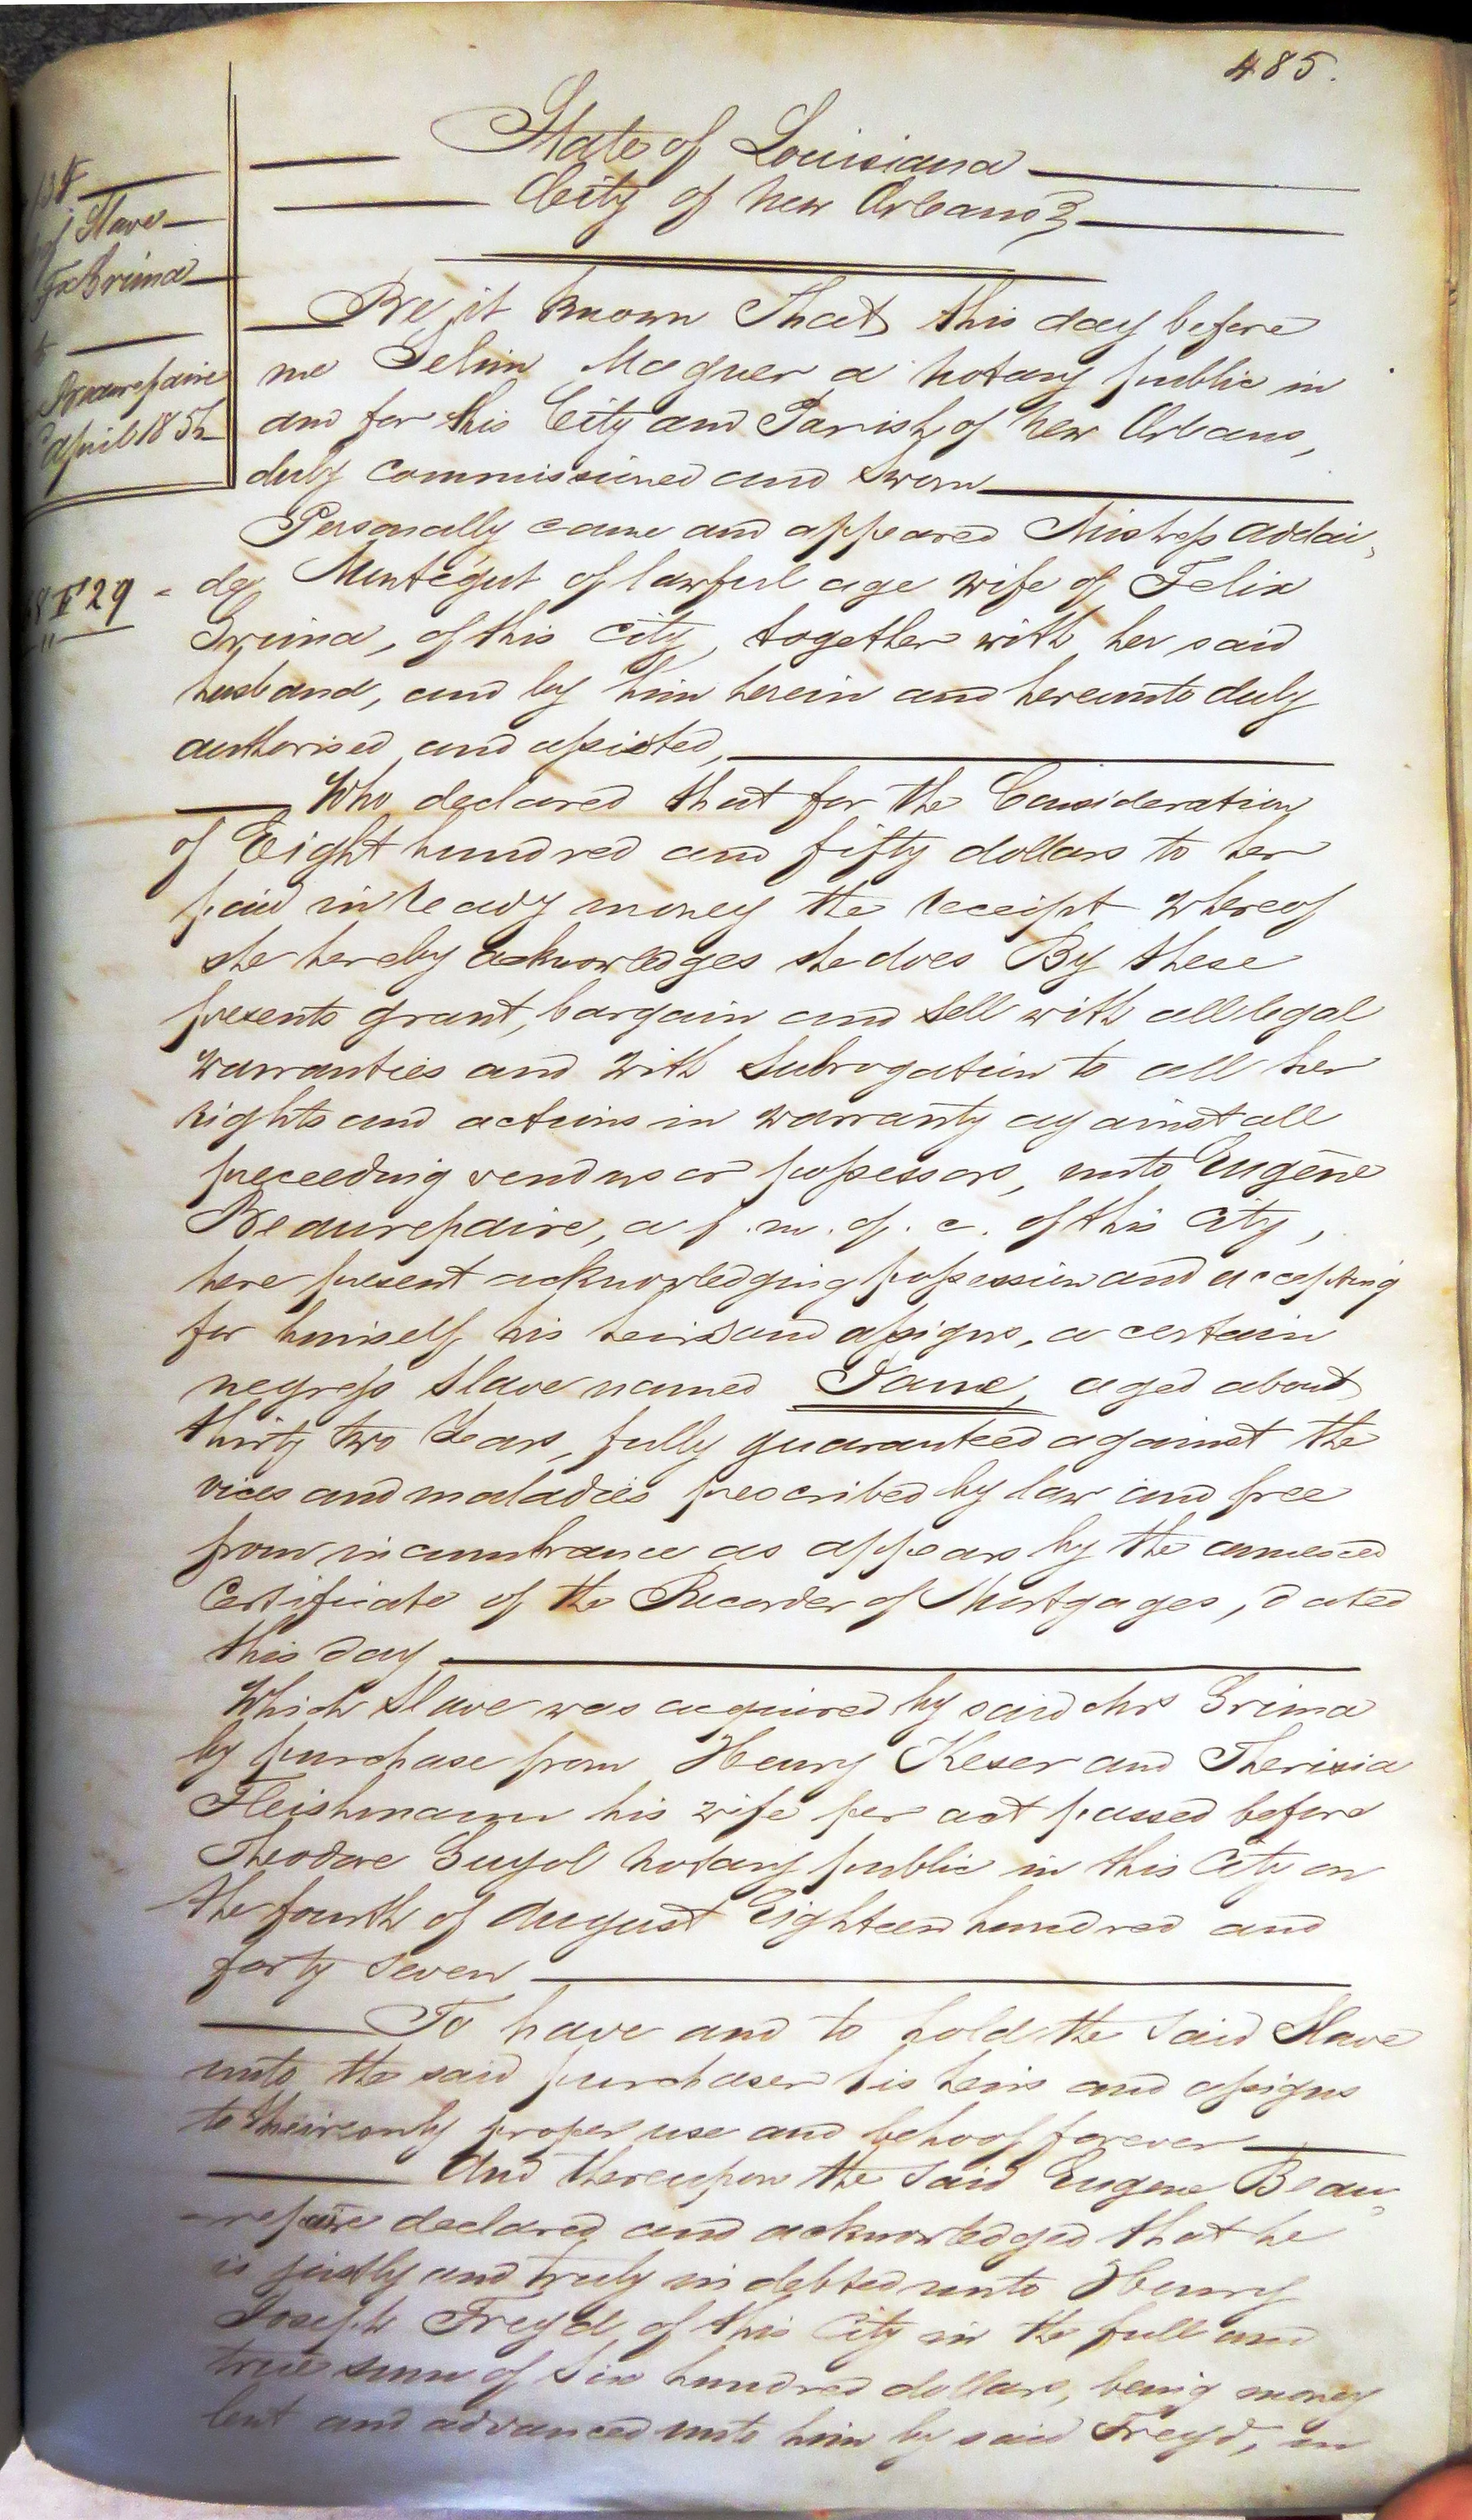 485.
State of Louisiana
City of New Orleans
Slave
Fx Grima
Beaurepaire
April 1852
Be it known That this day before
me Selim Magner a notary public in
and for this City and Parish of New Orleans,
duly commissioned and sworn
Personally came and appeared Mistress Addai,
da Montégut of lawful age wife of Felix
F 29
Grima, of this city, together with her said
husband, and by him herein and hereunto duly
authorised and assisted,
Who declared that for the Consideration
of Eight hundred and fifty dollars to her
paid in ready money the receipt whereof
she hereby acknowledges she does By these
presents grant, bargain and sell with all legal
warranties and with subrogation to all her
rights and actions in warranty against all
preceeding vendors or possessors, unto Eugène
Beaurepaire, a f. m. of. c. of this City,
here present acknowledging possession and accepting
for himself his heirs and assigns, a certain
negress slave named Jane, aged about
thirty two Years, fully guaranteed against the
vices and maladies prescribed by law and free
from incumbrance as appears by the annexed
Certificate of the Recorder of Mortgages, dated
this day
Which slave was acquired by said Mrs Grima
by purchase from Henry Keser and Therisia
Fleishmann his wife per act passed before
Theodore Guyol notary public in this City on
the fourth of August Eighteen hundred and
forty seven
To have and to hold the said Slave
unto the said purchaser his heirs and assigns
to their only proper use and behoof forever
And thereupon the said Eugene Beau,
=repaire declared and acknowledged that he
is justly and truly indebted unto Henry
Joseph Freyd, of this City in the full and
true sum of six hundred dollars, being money
lent and advanced unto him by said Freyd, in